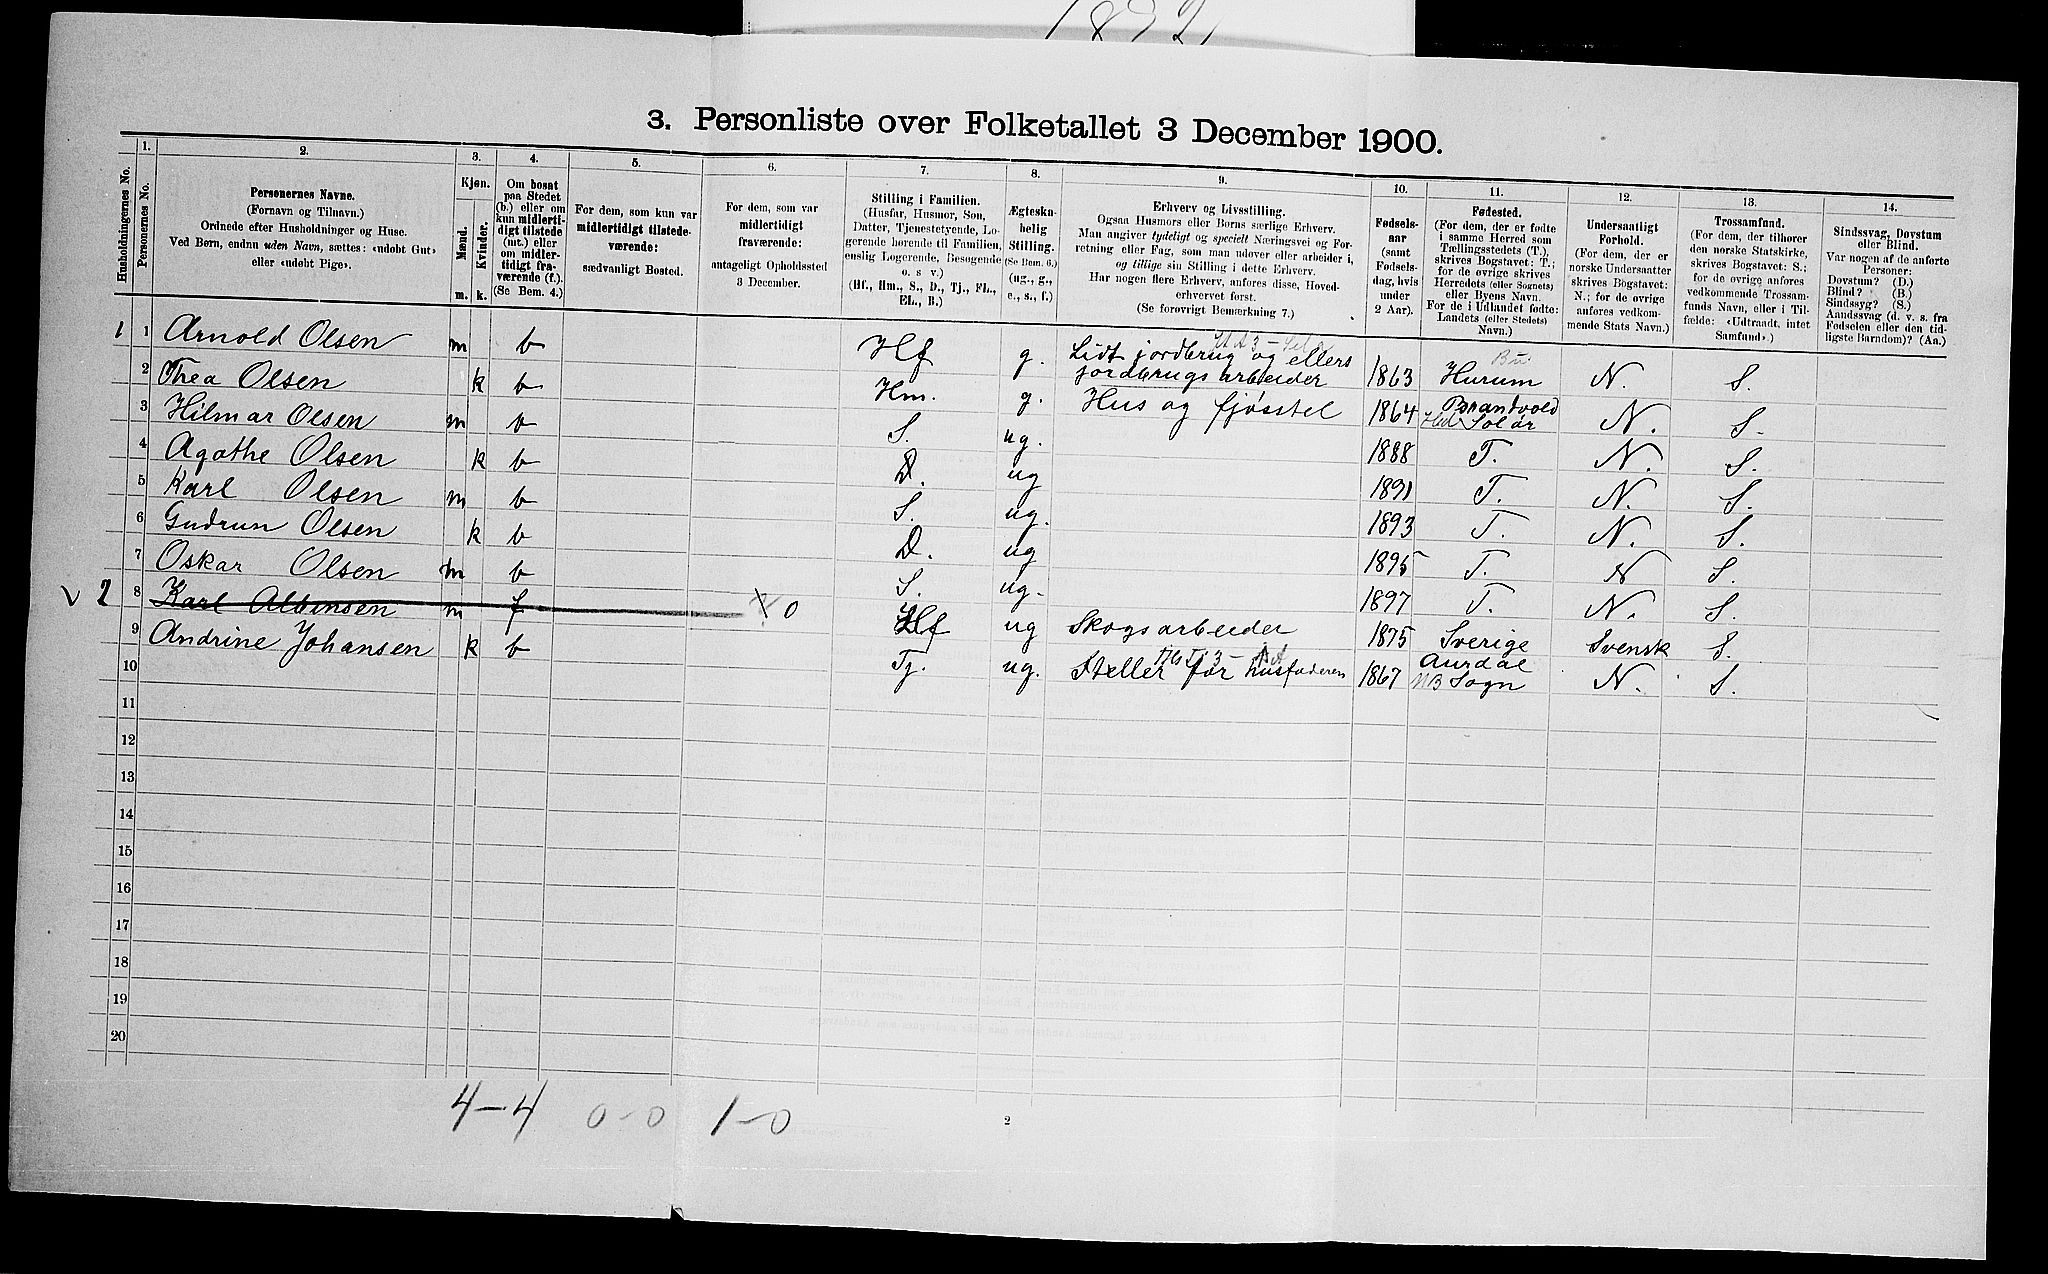 1892
3. Personliste over Folketallet 3 December 1900.
Husholdningernes No.
1.
Personernes No.
2.
Personernes Navne.
(Fornavn og Tilnavn.)
Ordnede efter Husholdninger og Huse.
Ved Børn, endnu uden Navn, sættes: «udøbt Gut»
eller «udøbt Pige».
3.
Kjøn.
Mænd.
Kvinder.
m.
k.
4.
Om bosat
paa Stedet
(b.) eller om
kun midlerti-
digt tilstede
(mt.) eller
om midler-
tidigt fra-
værende (f.).
(Se Bem. 4.)
5.
For dem, som kun var
midlertidigt tilstede-
værende:
sædvanligt Bosted.
6.
For dem, som var
midlertidigt
fraværende:
antageligt Opholdssted
3 December.
7.
Stilling i Familien.
(Husfar, Husmor, Søn,
Datter, Tjenestetyende, Lo-
gerende hørende til Familien,
enslig Logerende, Besøgende
o. s v.)
(Hf., Hm., S., D., Tj., FL.,
EL., B.)
8.
Ægteska-
belig
Stilling.
(Se Bem. 6.)
(ug., g.,
e., s., f.)
9.
Erhverv og Livsstilling.
Ogsaa Husmors eller Børns særlige Erhverv.
Man angiver tydeligt og specielt Næringsvei og For-
retning eller Fag, som man udøver eller arbeider i,
og tillige sin Stilling i dette Erhverv.
Har nogen flere Erhverv, anføres disse, Hoved-
erhvervet først.
(Se forøvrigt Bemærkning 7.)
10.
Fødsels-
aar
(samt
Fødsels-
dag, hvis
under
2 Aar).
11.
Fødested.
(For dem, der er fødte
i samme Herred som
Tællingsstedets (T.),
skrives Bogstavet: T.;
for de øvrige skrives
Herredets (eller Sognets)
eller Byens Navn.
For de i Udlandet fødte:
Landets (eller Stedets)
Navn.)
12.
Undersaatligt
Forhold.
(For dem, der er
norske Undersaatter
skrives Bogstavet:
N.; for de øvrige
anføres vedkom-
mende Stats Navn.)
13.
Trossamfund.
(For dem, der tilhører
den norske Statskirke,
skrives Bogstavet: S.;
for de øvrige anføres
vedkommende Trossam-
funds Navn, eller i Til-
fælde: «Udtraadt, intet
Samfund».)
14.
Sindssvag, Døvstum
eller Blind.
Var nogen af de anførte
Personer:
Døvstum? (D.)
Blind? (B.)
Sindssyg? (S.)
Aandssvag (d. v. s. fra
Fødselen eller den tid-
ligste Barndom)? (Aa.)
1 1 Arnold Olsen m b Hf g. Lidt jordbrug og ellers
jordbrugsarbeider 1863 Hurum N. S.
2 Thea Olsen k b Hm. g. Hus og fjøsstel 1864 Brandvold
Hed Solør N. S.
3 Hilmar Olsen m b S. ug. 1888 T. N. S.
4 Agathe Olsen k b D. ug 1891 T. N. S.
5 Karl Olsen m b S. ug. 1893 T. N. S.
6 Gudrun Olsen k b D. ug 1895 T. N S.
7 Oskar Olsen m b S. ug. 1897 T. N. S.
v 2 8 Karl Albinsen m f 0 Hf ug Skogsarbeider 1875 Sverige Svensk S.
9 Andrine Johansen k b Tj. ug. Steller for husfaderen 1867 Aurdal
NB Sogn N. S.
10
11
12
13
14
15
16
17
18
19
20
4-4 0-0 1-0
2